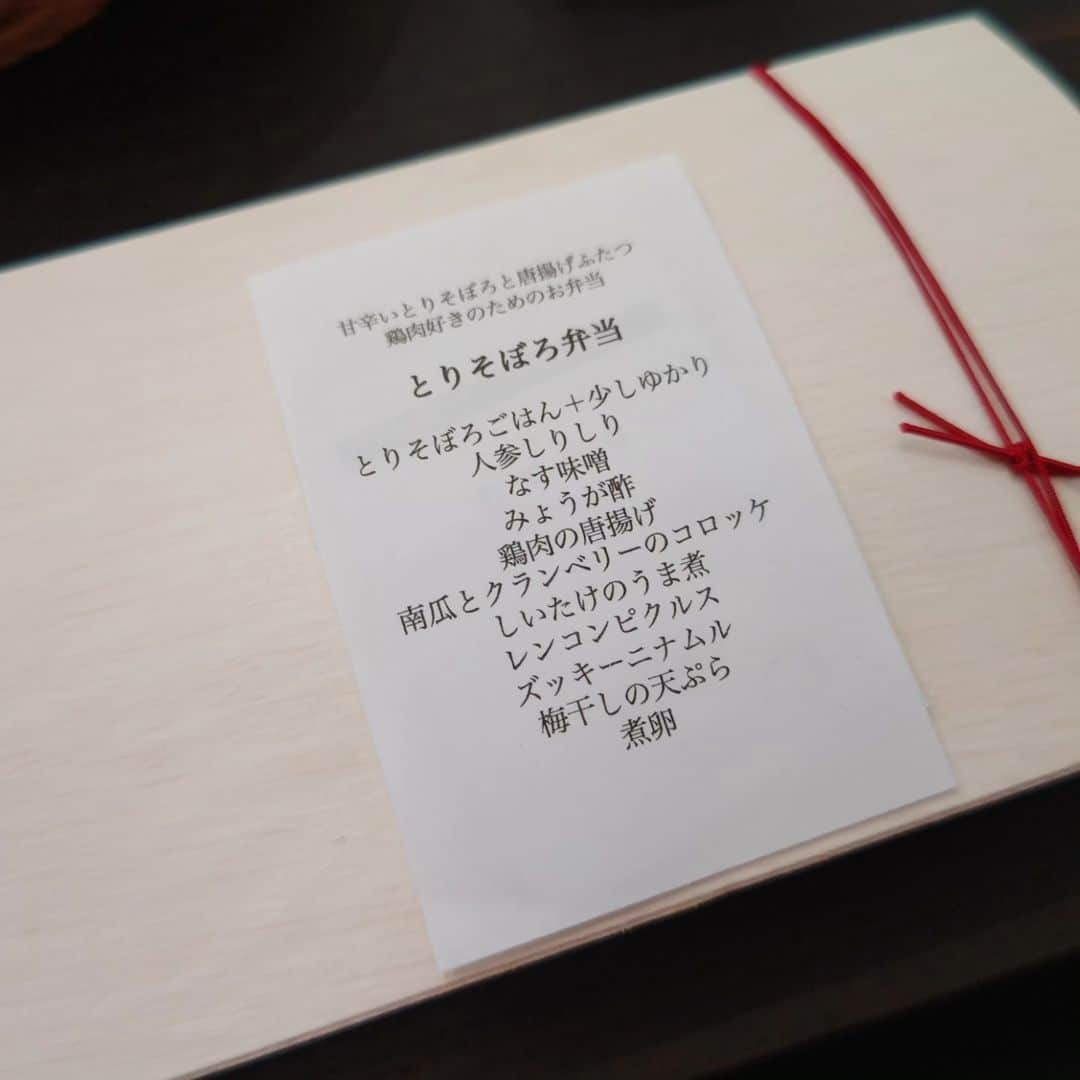 甘辛いとりそぼろと唐揚げふたつ
鶏肉好きのためのお弁当
とりそぼろ弁当
とりそぼろごはん＋少しゆかり
人参しりしり
なす味噌
みょうが酢
鶏肉の唐揚げ
南瓜とクランベリーのコロッケ
しいたけのうま煮
レンコンピクルス
ズッキーニナムル
梅干しの天ぷら
煮卵